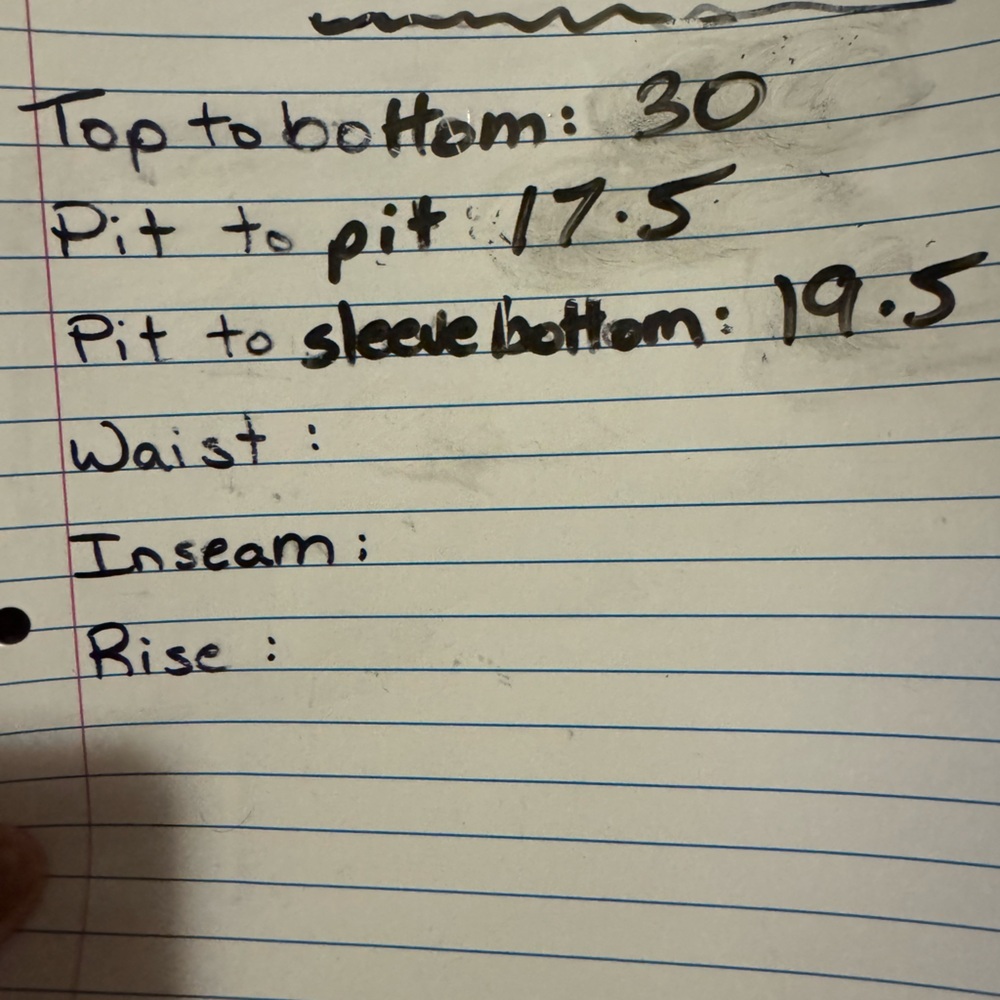 Top to bottom: 30
Pit to pit : 17.5
Pit to sleeve bottom: 19.5
Waist :
Inseam :
Rise :